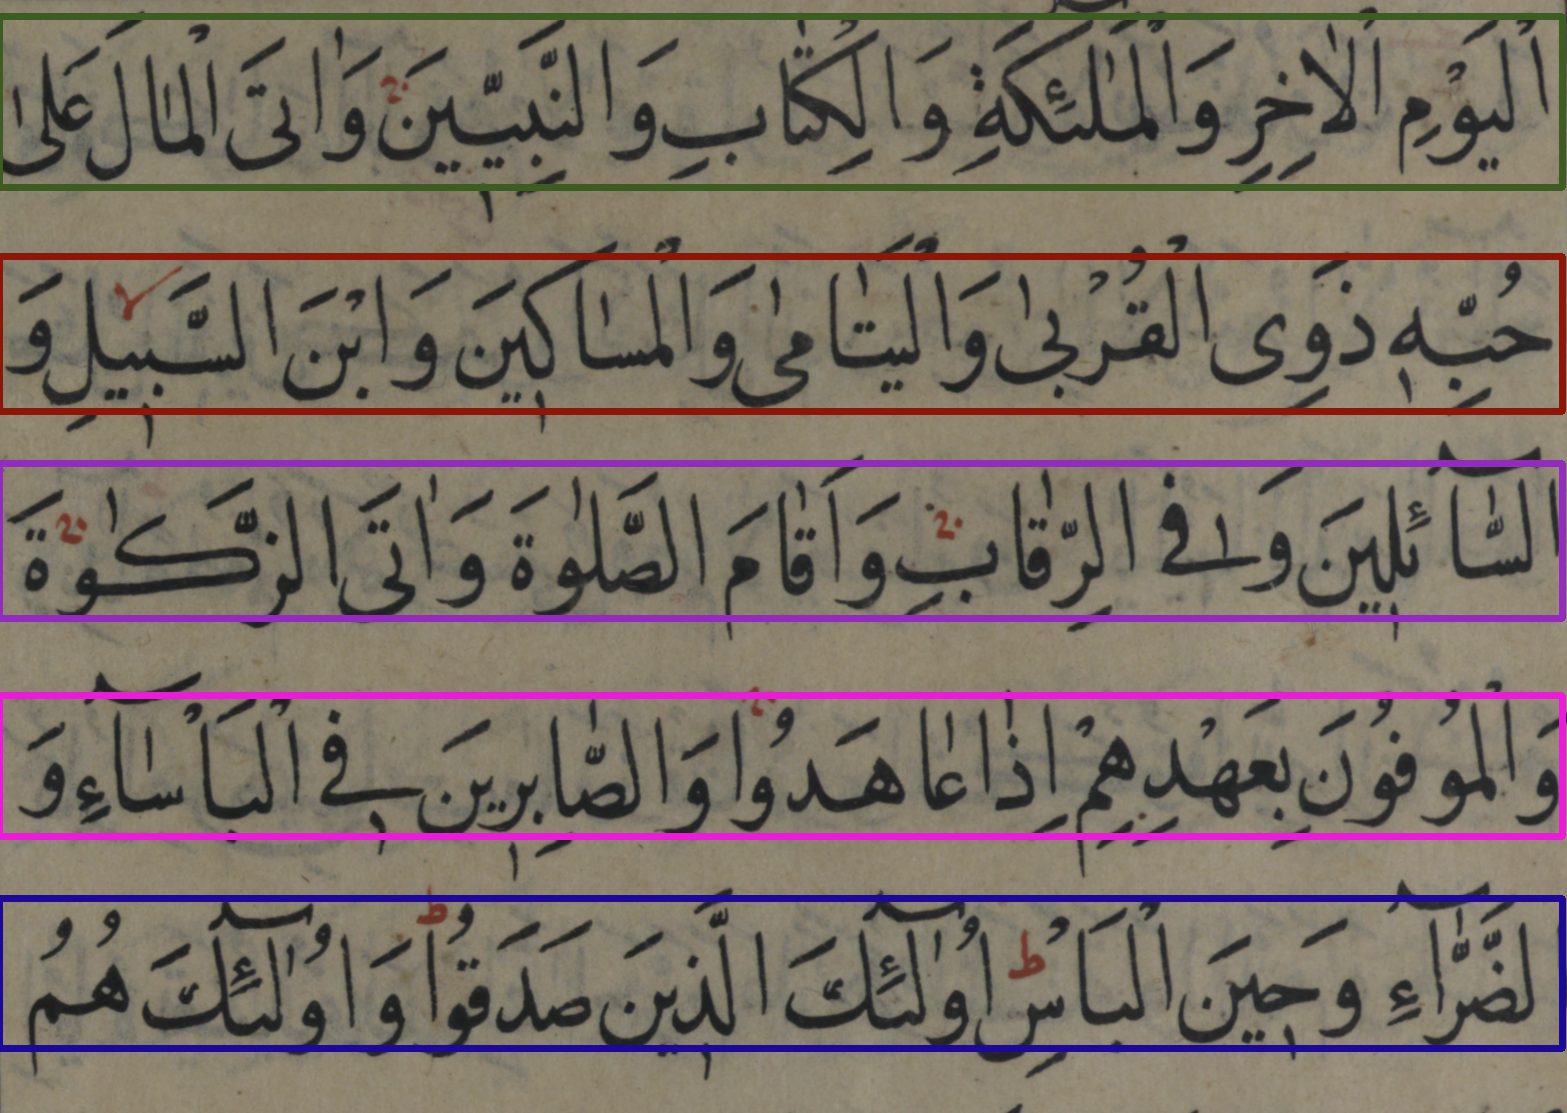 اْليَوْمِ اْلاٰخِرِ وَاْلمَلٰئِكَةِ وَالْكِتٰابِ وَالنَّبِيّٖينَ وَاٰتَى الْمٰالَ عَلىٰ
حُبِّهٖ ذَوِى الْقُرْبىٰ وَاْليَتٰامىٰ وَاْلمَسٰاكٖينَ وَابْنَ السَّبٖيلِ وَ
السّٰٓائِلٖينَ وَفِى الرِّقٰابِ وَاَقٰامَ الصَّلٰوةَ وَاٰتَى الزَّكٰوةَ
وَاْلمُوْفُوْنَ بِعَهْدِهِمْ اِذٰا عٰاهَدُوْا وَالصّٰابِرٖينَ فٖى اْلبَاْسٰٓاءِ وَ
لضَّرّٰٓاءِ وَحٖينَ اْلبَاْسِ اُولٰٓئِكَ الَّذٖينَ صَدَقُوْا وَاُولٰٓئِكَ هُمُ